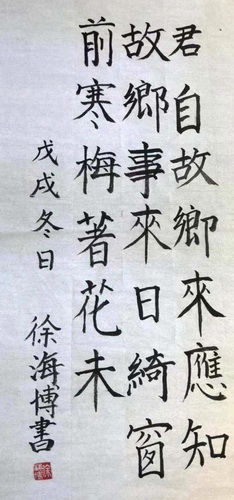 君自故鄉來應知
故鄉事來日綺窗
前寒梅著花未
戊戌冬日
徐海博書